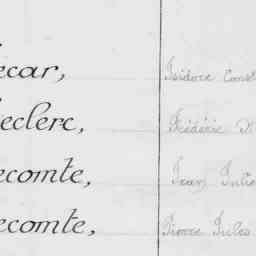 ecar, Isidore Const
Leclerc, Frédéric A
ecomte, Jean Julie
ecomte, Pierre Jules